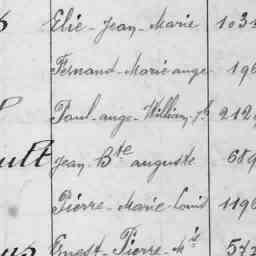 Elie-Jean-Marie 103
Fernand-Marie ange 196
Paul-ange-William-jh 212
ult Jean Bte auguste 689
Pierre-Marie-Louis 1196
us Ernest-Pierre-Mie 573